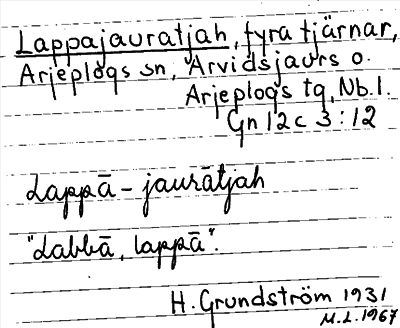 Lappajauratjah, fyra tjärnar,
Arjeplogs sn, Arvidsjaurs o.
Arjeplogs tg, Nb.l.
Gn 12 c 3:12
Lappā - jaurātjah
"Labbā, lappā".
H. Grundström 1931
M.L. 1967